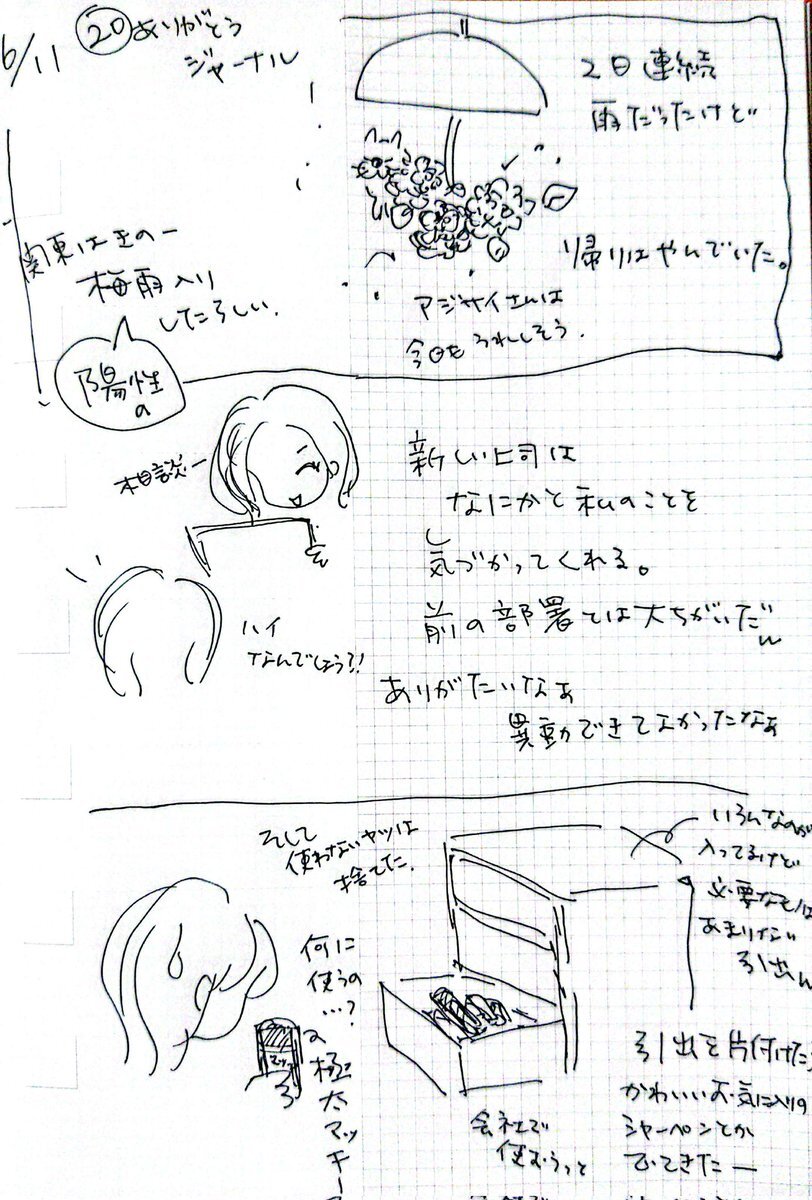 6/11
⑳ありがとう
ジャーナル
2日連続
雨だったけど
帰りはやんでいた。
アジサイさんは
今日もうれしそう.
関東はきのー
梅雨入り
したらしい.
陽性
の
相談ー
ハイ
なんでしょう?!
新しい上司は
なにかと私のことを
気づかってくれる。
前の部署とは大ちがいだw
ありがたいなぁ
異動できてよかったなぁ
そして
使わないヤツは
捨てた.
何に
使うの
…?
極太マッキー
マッキー
いろんなのが
入ってるけど
必要なモノは
あまりない
引出w
引出を片付けたら
かわいいお気に入りの
シャーペンとか
でてきたー
会社で
使おうっと